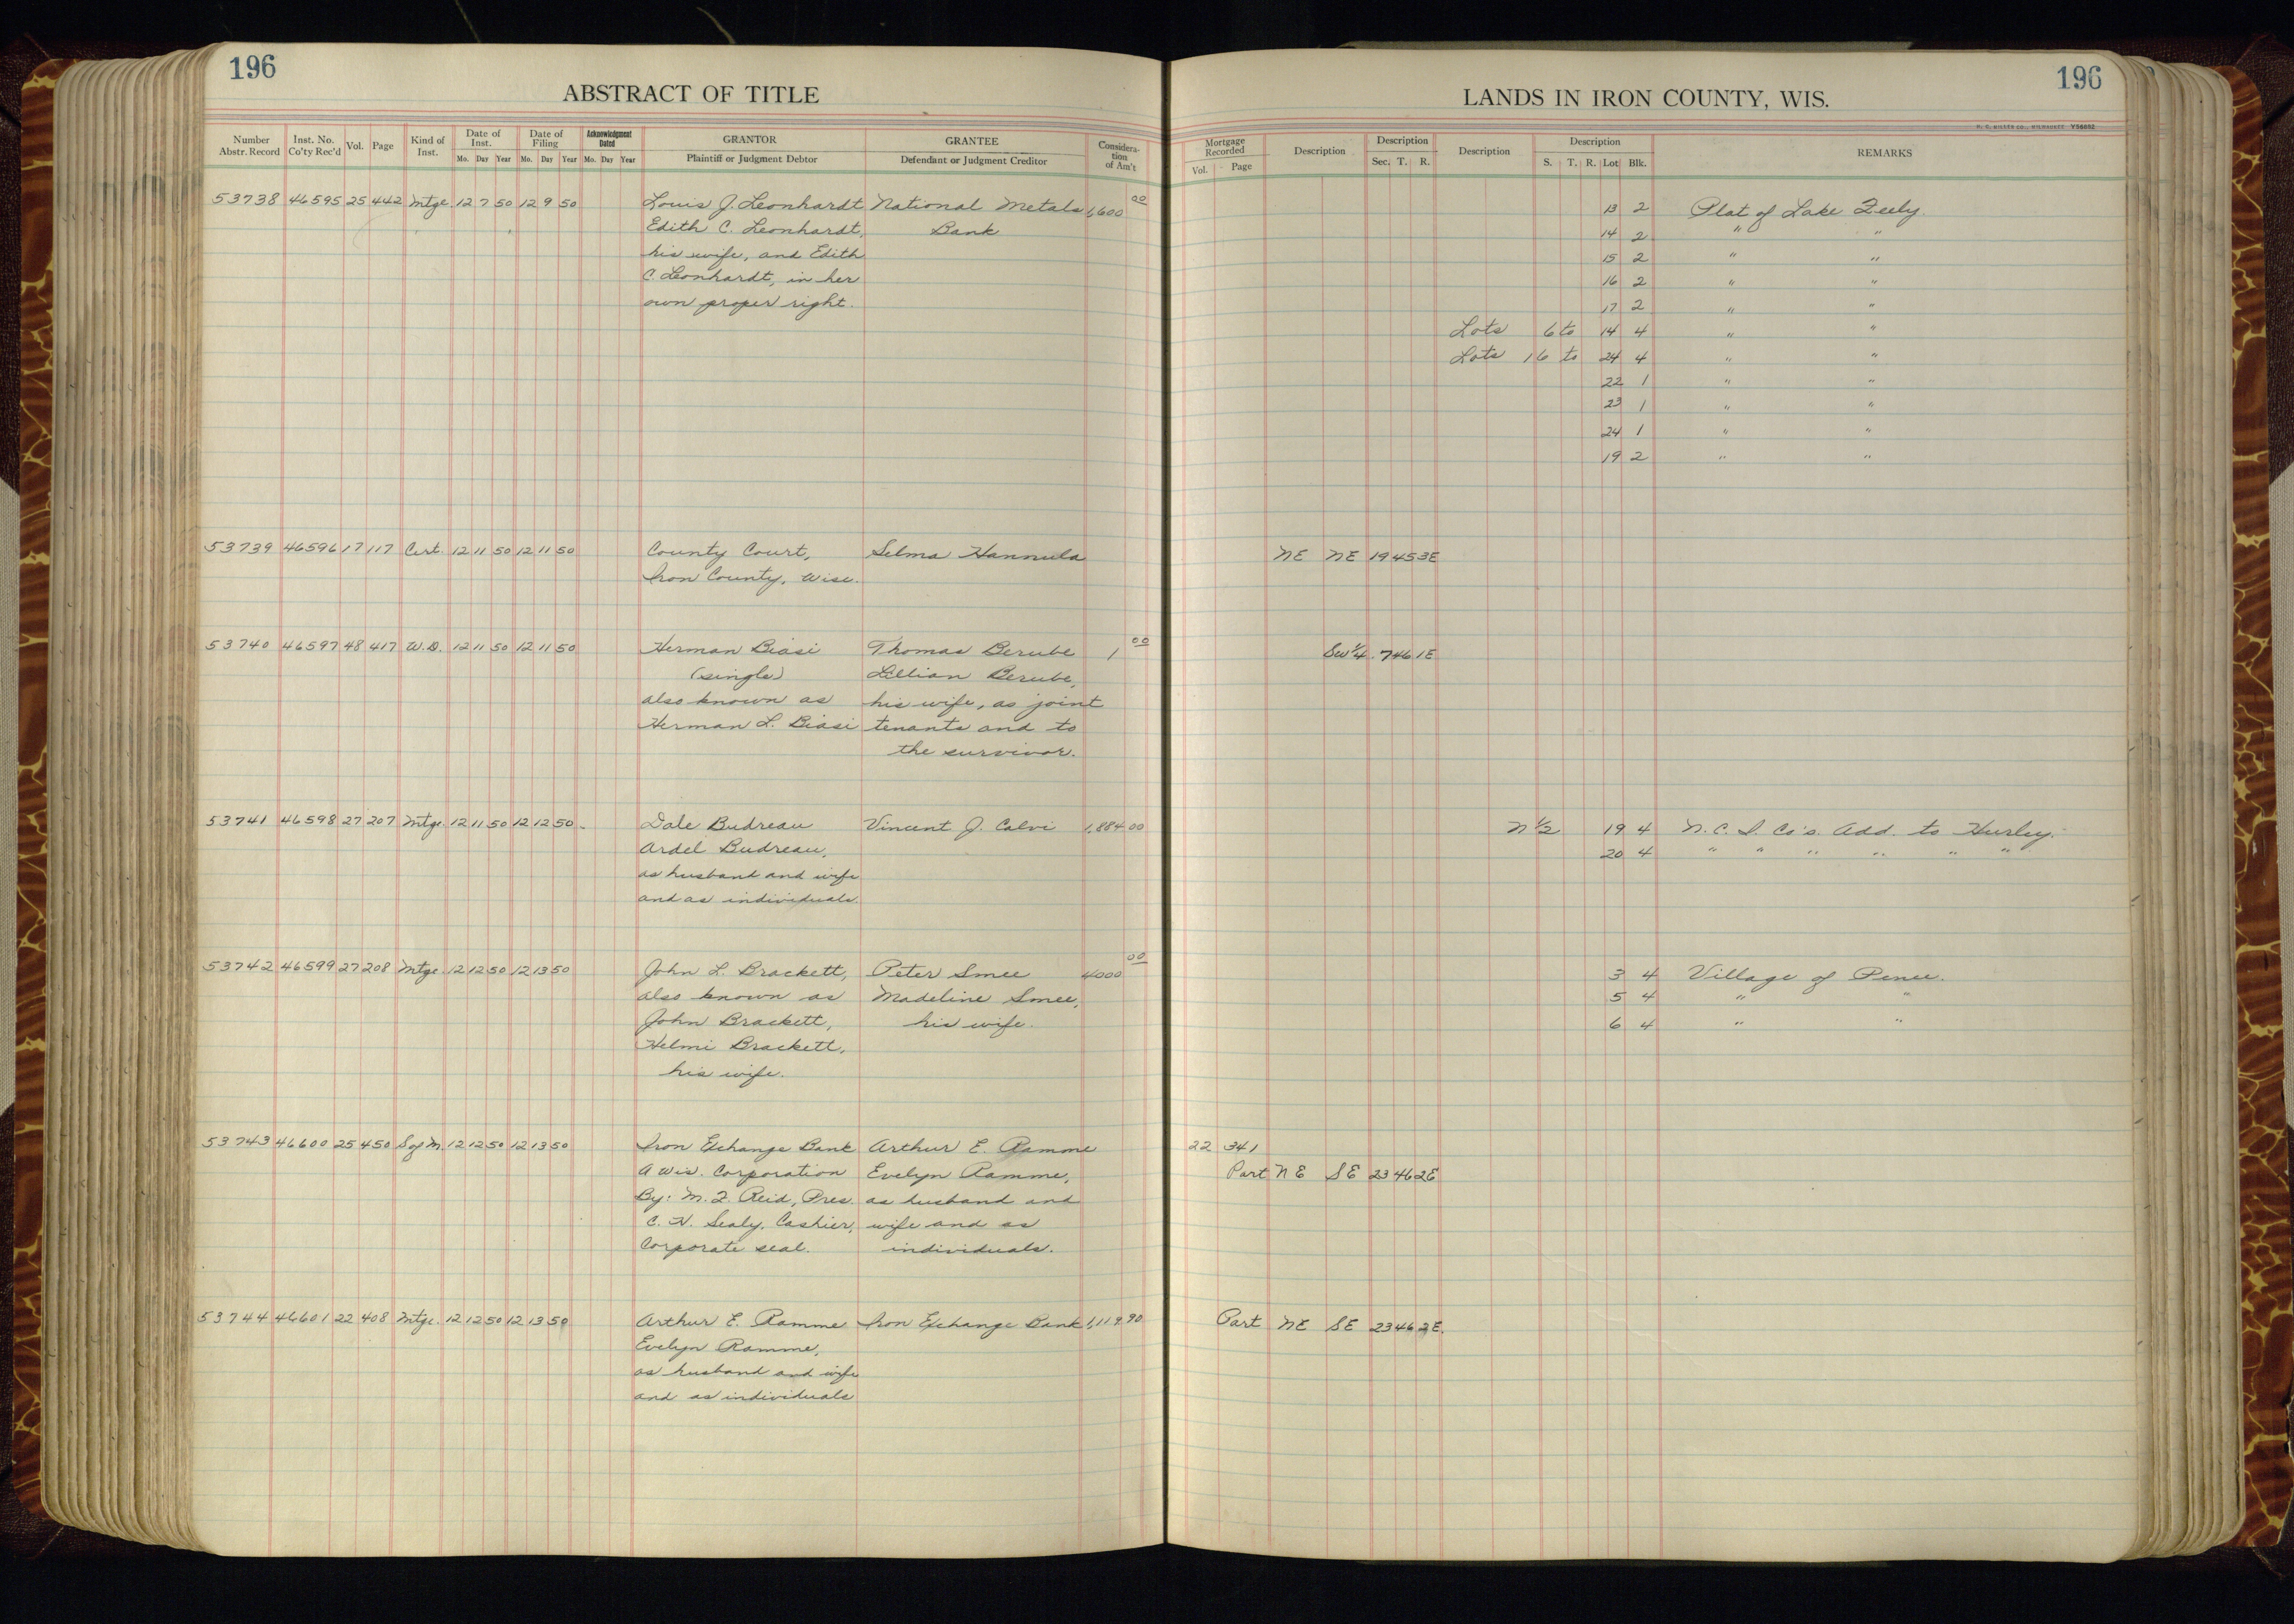 196
ABSTRACT OF TITLE
Number Abstr. Record
Inst. No. Co'ty Rec'd
Vol.
Page
Kind of Inst.
Date of Inst.
Mo. Day Year
Date of Filing
Mo. Day Year
Acknowledgment Dated
Mo. Day Year
GRANTOR
Plaintiff or Judgment Debtor
GRANTEE
Defendant or Judgment Creditor
Considera-tion of Am't
53738 46595 25 442 Mtge. 12 7 50 12 9 50 Louis J. Leonhardt National Metals 1,600 00
Edith C. Leonhardt, Bank
his wife, and Edith
C. Leonhardt, in her
own proper right.
53739 46596 17 117 Cert. 12 11 50 12 11 50 County Court, Selma Hannula
Iron County, Wisc.
53740 46597 48 417 W.D. 12 11 50 12 11 50 Herman Biasi Thomas Berube 1 00
(single) Lillian Berube,
also known as his wife, as joint
Herman L. Biasi tenants and to
the survivor.
53741 46598 27 207 Mtge. 12 11 50 12 12 50 Dale Budreau Vincent J. Calvi 1,884 00
Ardel Budreau,
as husband and wife
and as individuals.
53742 46599 27 208 Mtge. 12 12 50 12 13 50 John L. Brackett, Peter Smee 4000 00
also known as Madeline Smee,
John Brackett, his wife.
Helmi Brackett,
his wife.
53743 46600 25 450 S of M. 12 12 50 12 13 50 Iron Exchange Bank Arthur E. Ramme
A Wis. Corporation Evelyn Ramme,
By: M. J. Reid, Pres. as husband and
C. N. Sealy, Cashier, wife and as
Corporate seal. individuals.
53744 46601 22 408 Mtge. 12 12 50 12 13 50 Arthur E. Ramme Iron Exchange Bank 1,119 90
Evelyn Ramme,
as husband and wife
and as individuals
196
LANDS IN IRON COUNTY, WIS.
H. C. MILLER CO., MILWAUKEE Y56652
Mortgage Recorded
Vol. Page
Description
Description
Sec. T. R.
Description
Description
S. T. R. Lot Blk.
REMARKS
13 2 Plat of Lake
14 2 " "
15 2 " "
16 2 " "
17 2 " "
Lots 6 to 14 4 " "
Lots 16 to 24 4 " "
22 1 " "
23 1 " "
24 1 " "
19 2 " "
NE NE 19 45 3E
SW 1/4 7 46 1E
N 1/2 19 4 N. C. I. Co's. Add. to Hurley.
20 4 " " " " " "
3 4 Village of Pence.
5 4 " "
6 4 " "
22 341
Part NE SE 23 46 2E
Part NE SE 23 46 2E.